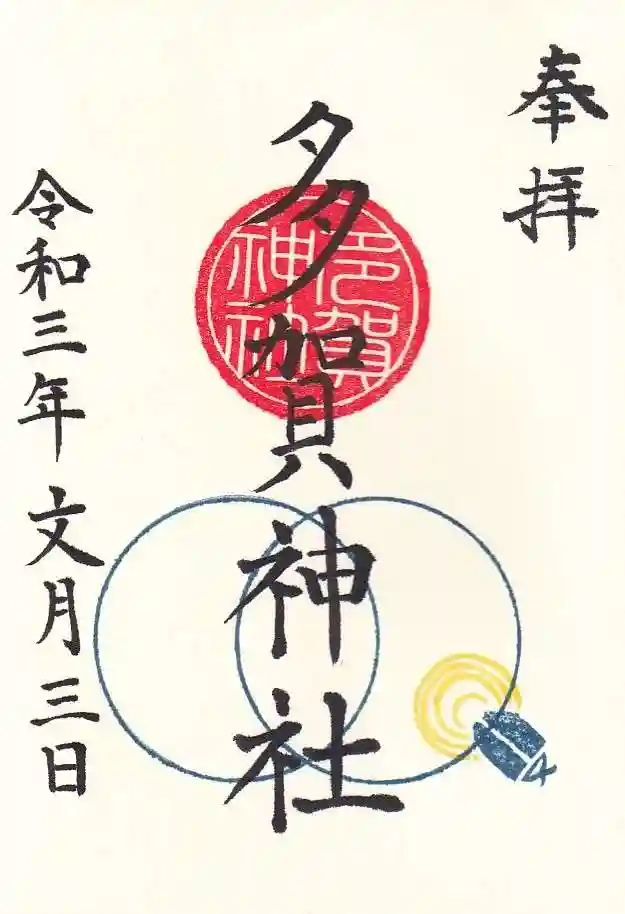 奉拝
多賀神社
多賀神社
令和三年文月三日